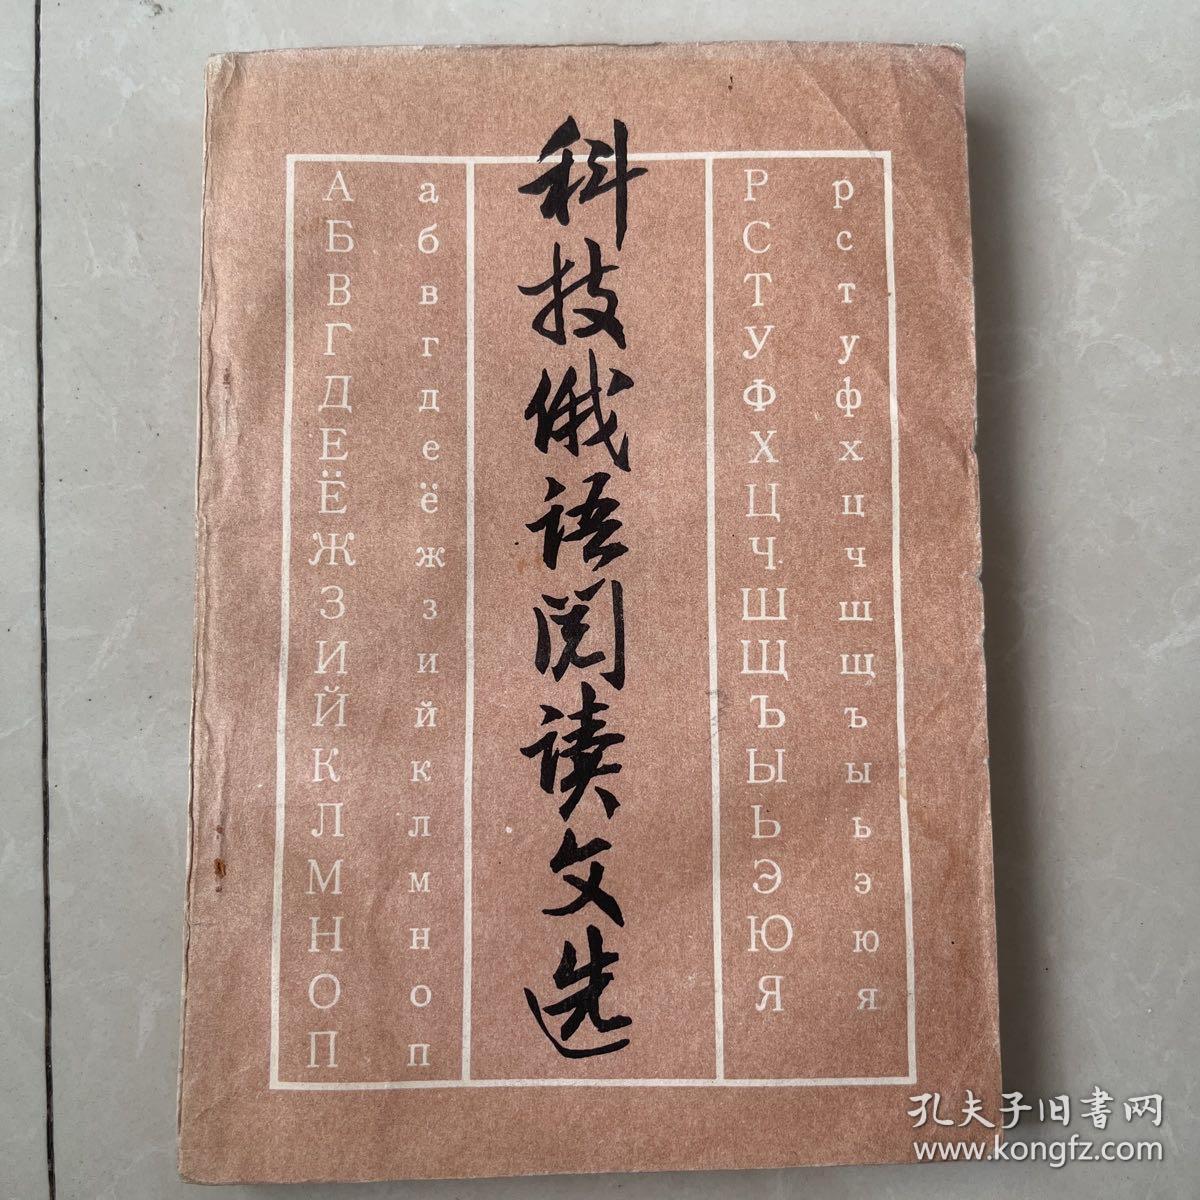 科技俄语阅读文选
А а
Б б
В в
Г г
Д д
Е е
Ё ё
Ж ж
З з
И и
Й й
К к
Л л
М м
Н н
О о
П п
Р р
С с
Т т
У у
Ф ф
Х х
Ц ц
Ч ч
Ш ш
Щ щ
Ъ ъ
Ы ы
Ь ь
Э э
Ю ю
Я я
孔夫子旧書网
www.kongfz.com